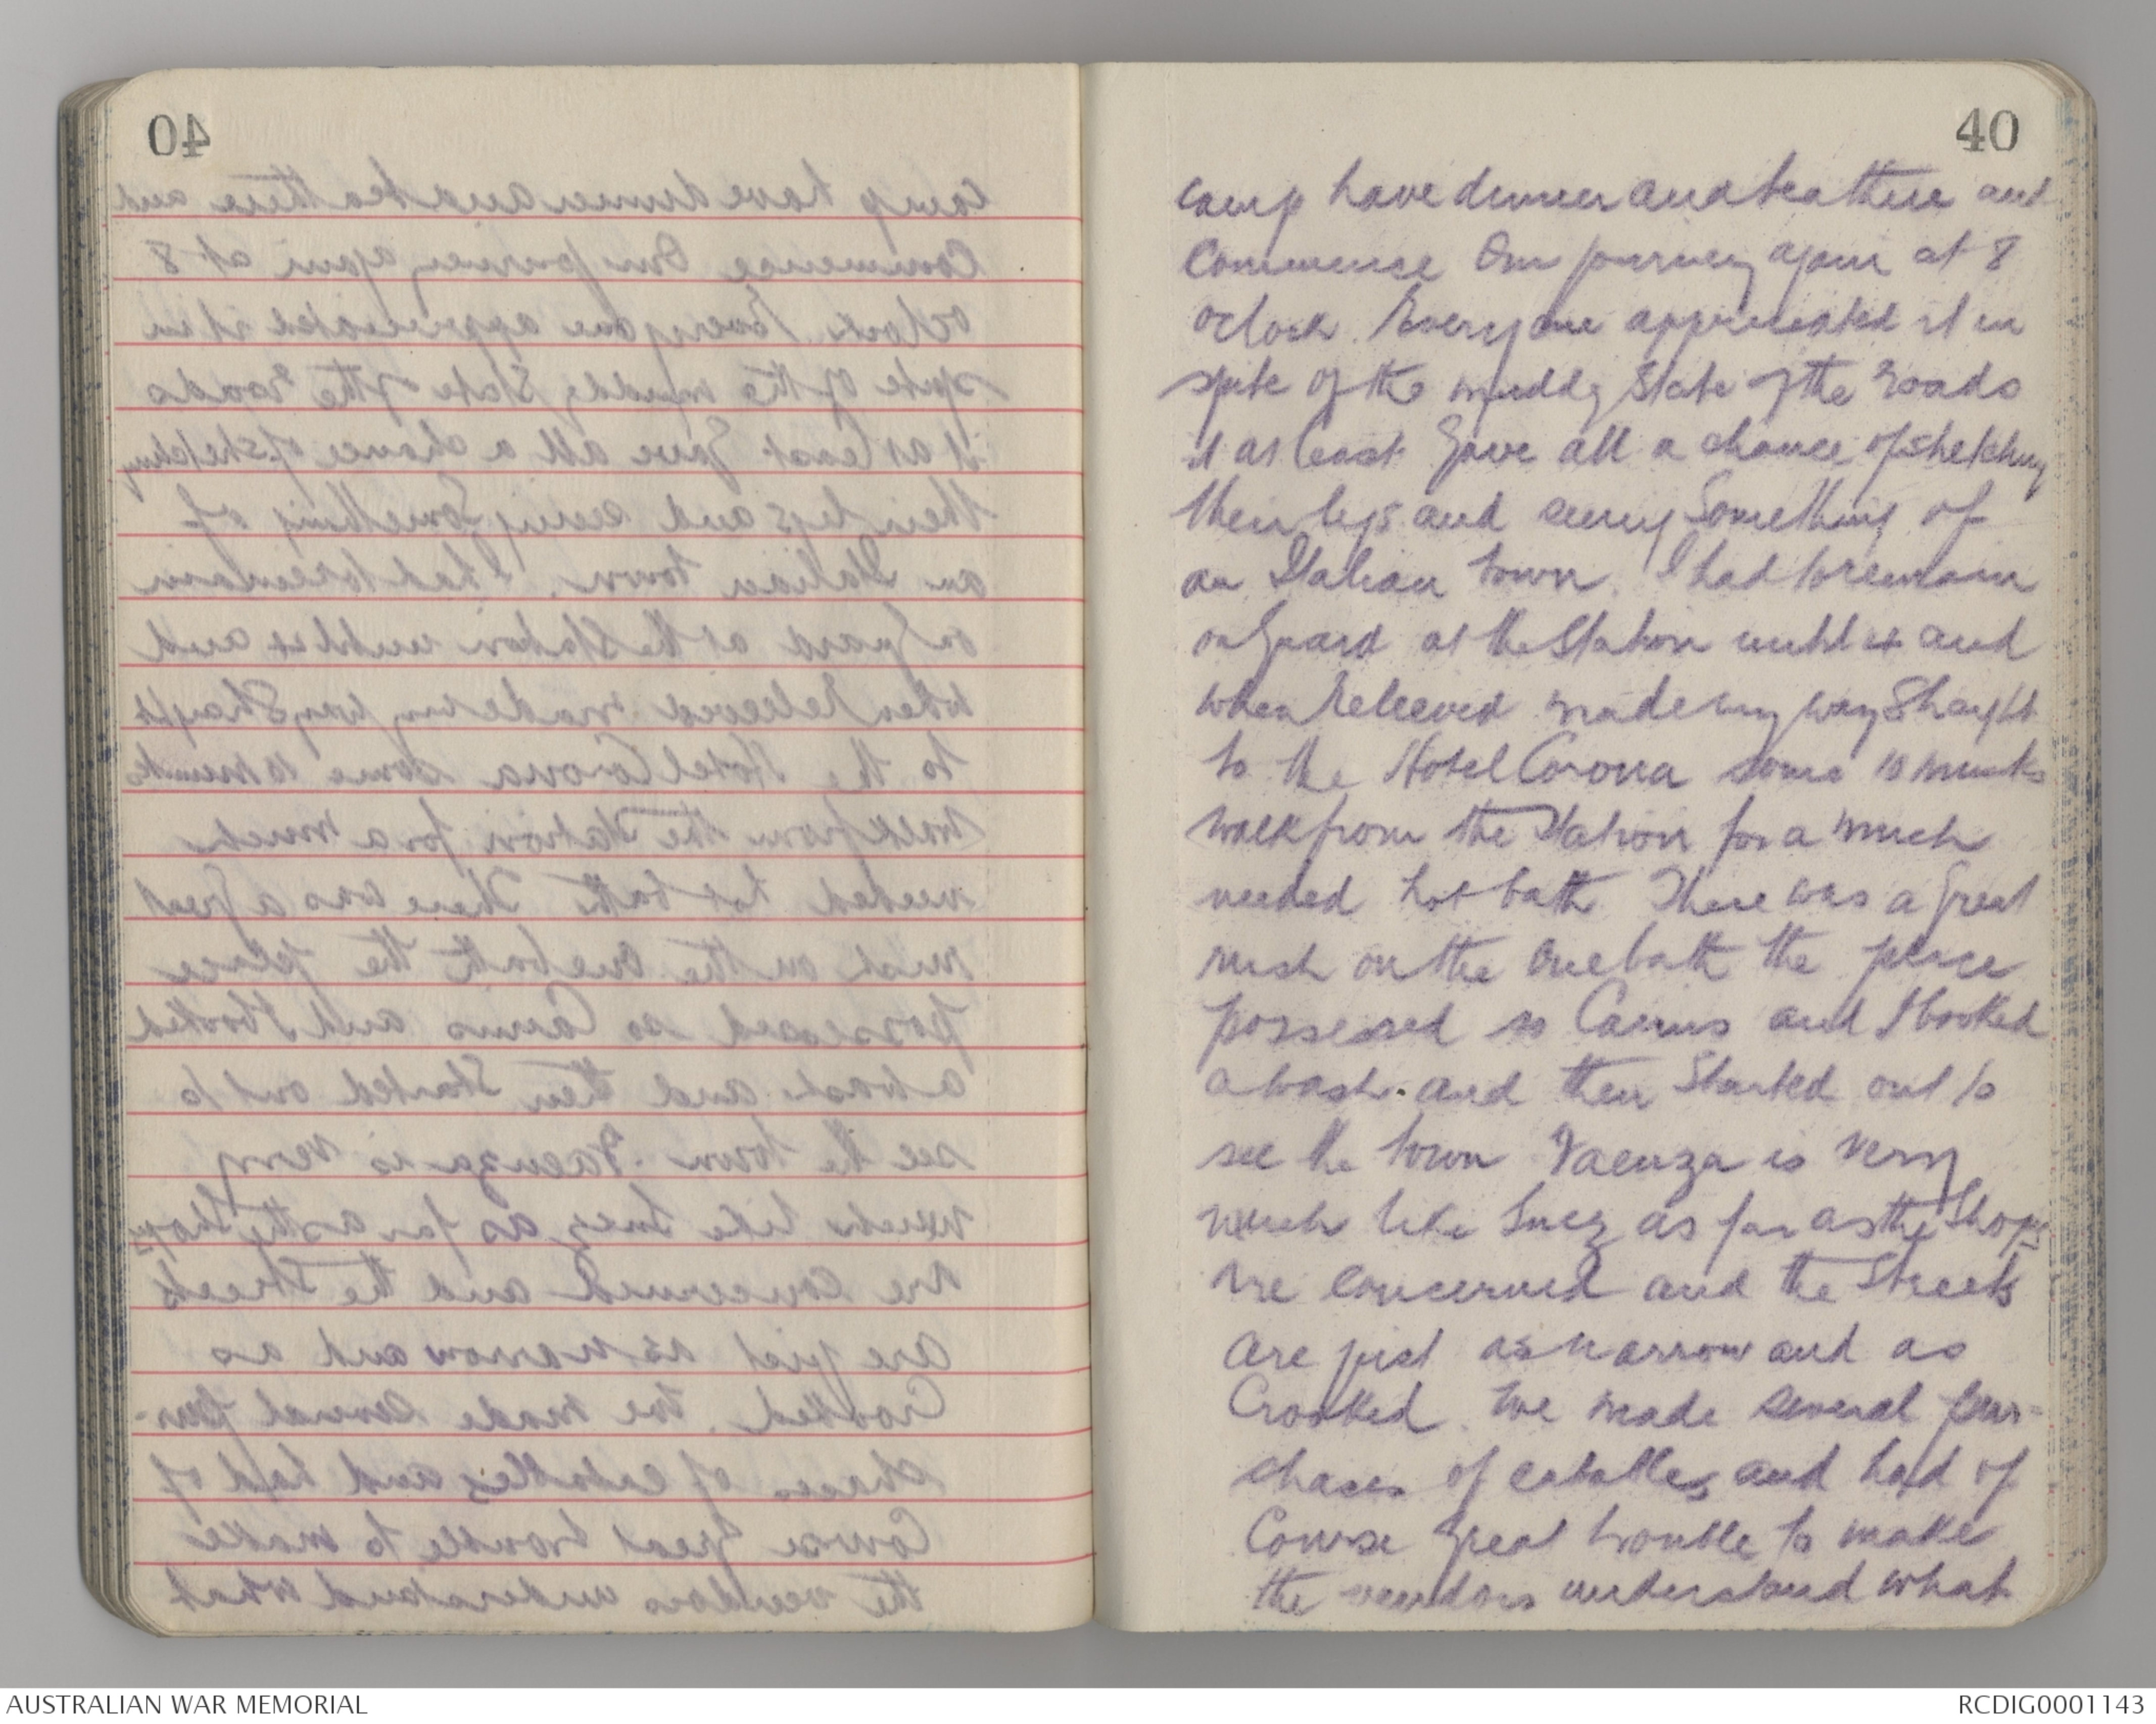 40
40
camp have dinner and tea there and
Commence Our journey again at 8
oclock. Everyone appreciated it in
spite of the muddy State of the roads
it at least gave all a chance of stretching
their legs and seeing Something of
an Italian town. I had to remain
on Guard at the Station until 4 and
when Releived made my way Straight
to the Hotel Corona some 10 minuts
walk from the Station for a much
needed hot bath There was a Great
rush on the One bath the place
possessed so Cairns and I booked
a wash and then Started out to
see the town Faenza is very
much like Suez as far as the Shops
are concerned and the Streets
are just as narrow and as
Crooked. We made several pur-
chases of eatables and had of
Course great trouble to make
the vendors understand what
AUSTRALIAN WAR MEMORIAL
RCDIG0001143